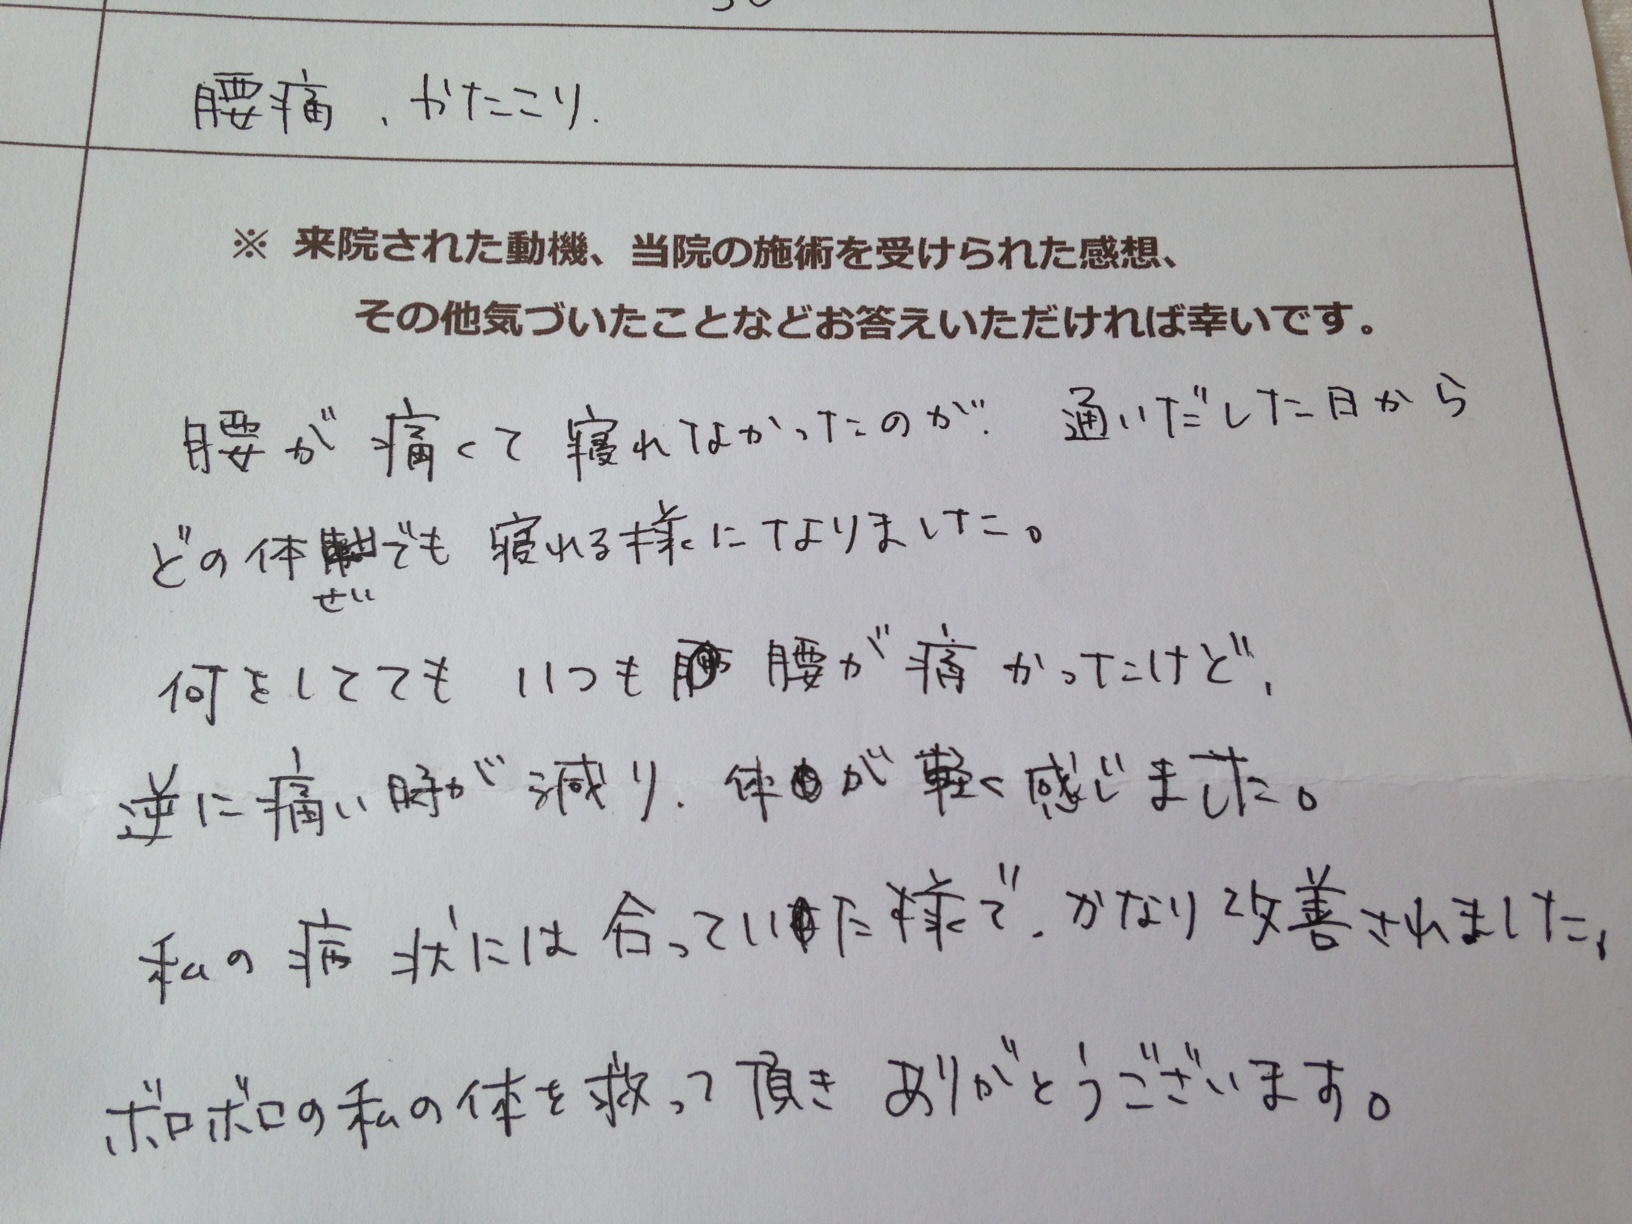 腰痛、かたこり.
※ 来院された動機、当院の施術を受けられた感想、
その他気づいたことなどお答えいただければ幸いです。
腰が痛くて寝れなかったのが、通いだした日から
どの体ぜいでも寝れる様になりました。
何をしててもいつも腰が痛かったけど、
逆に痛い時が減り、体が軽く感じました。
私の病状には合っていた様で、かなり改善されました、
ボロボロの私の体を救って頂きありがとうございます。